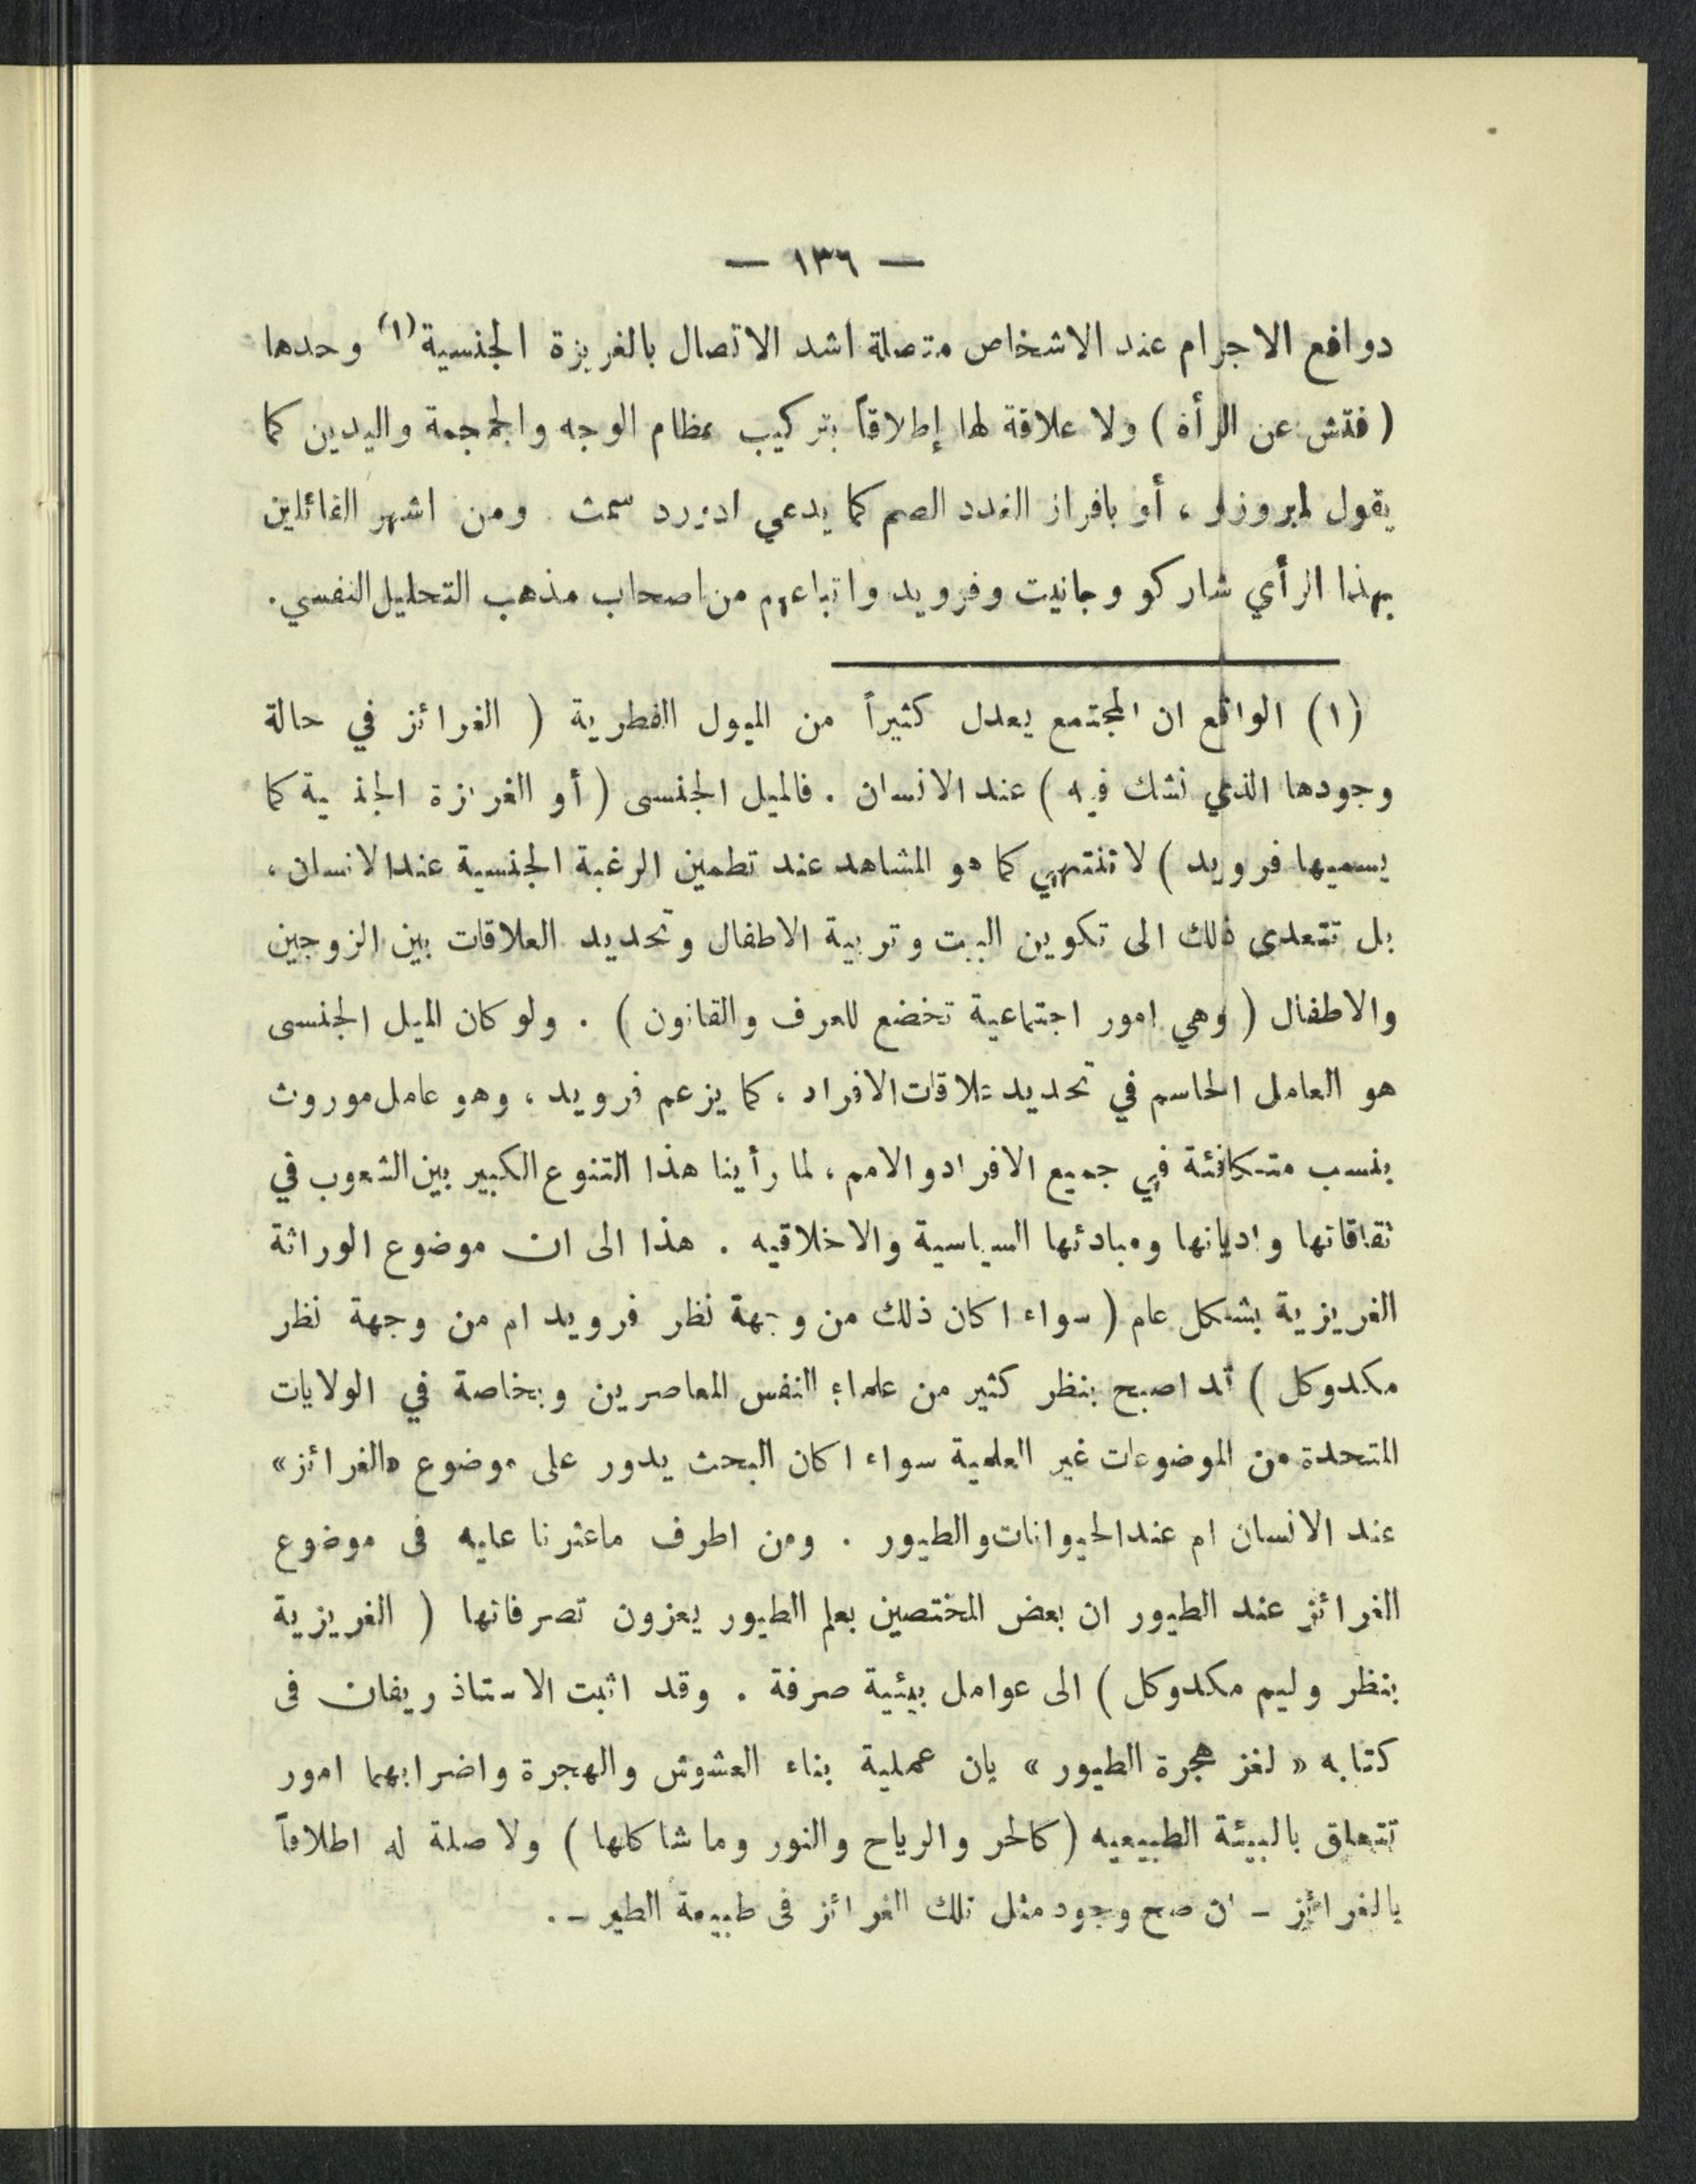 — ١٣٦ —
دوافع الاجرام عند الاشخاص متصلة اشد الاتصال بالغريزة الجنسية (١) وحدها
( فتش عن المرأة ) ولا علاقة لها إطلاقاً بتركيب عظام الوجه والجمجمة واليدين كما
يقول لمبروزو ، أو بافراز الغدد الصم كما يدعي ادورد سمث . ومن اشهر القائلين
بهذا الرأي شاركو وجانيت وفرويد واتباعهم من اصحاب مذهب التحليل النفسي .
(١) الواقع ان المجتمع يعدل كثيراً من الميول الفطرية ( الغرائز في حالة
وجودها الذي نشك فيه ) عند الانسان . فالميل الجنسى ( أو الغريزة الجنسية كما
يسميها فرويد ) لا تنتهي كما هو المشاهد عند تطمين الرغبة الجنسية عند الانسان ،
بل تتعدى ذلك الى تكوين البيت وتربية الاطفال وتحديد العلاقات بين الزوجين
والاطفال ( وهي امور اجتماعية تخضع للعرف والقانون ) . ولو كان الميل الجنسى
هو العامل الحاسم في تحديد علاقات الافراد ، كما يزعم فرويد ، وهو عامل موروث
بنسب متكافئة في جميع الافراد والامم ، لما رأينا هذا التنوع الكبير بين الشعوب في
ثقاقاتها واديانها ومبادئها السياسية والاخلاقيه . هذا الى ان موضوع الوراثة
الغريزية بشكل عام ( سواء اكان ذلك من وجهة نظر فرويد ام من وجهة نظر
مكدوكل ) قد اصبح بنظر كثير من علماء النفس المعاصرين وبخاصة في الولايات
المتحدة من الموضوعات غير العلمية سواء اكان البحث يدور على موضوع «الغرائز»
عند الانسان ام عند الحيوانات والطيور . ومن اطرف ماعثرنا عليه فى موضوع
الغرائز عند الطيور ان بعض المختصين بعلم الطيور يعزون تصرفاتها ( الغريزية
بنظر وليم مكدوكل ) الى عوامل بيئية صرفة . وقد اثبت الاستاذ ريفان فى
كتابه « لغز هجرة الطيور » بان عملية بناء العشوش والهجرة واضرابهما امور
تتعلق بالبيئة الطبيعيه ( كالحر والرياح والنور وما شاكلها ) ولا صلة له اطلاقاً
بالغرائز - ان صح وجود مثل تلك الغرائز فى طبيعة الطير - .